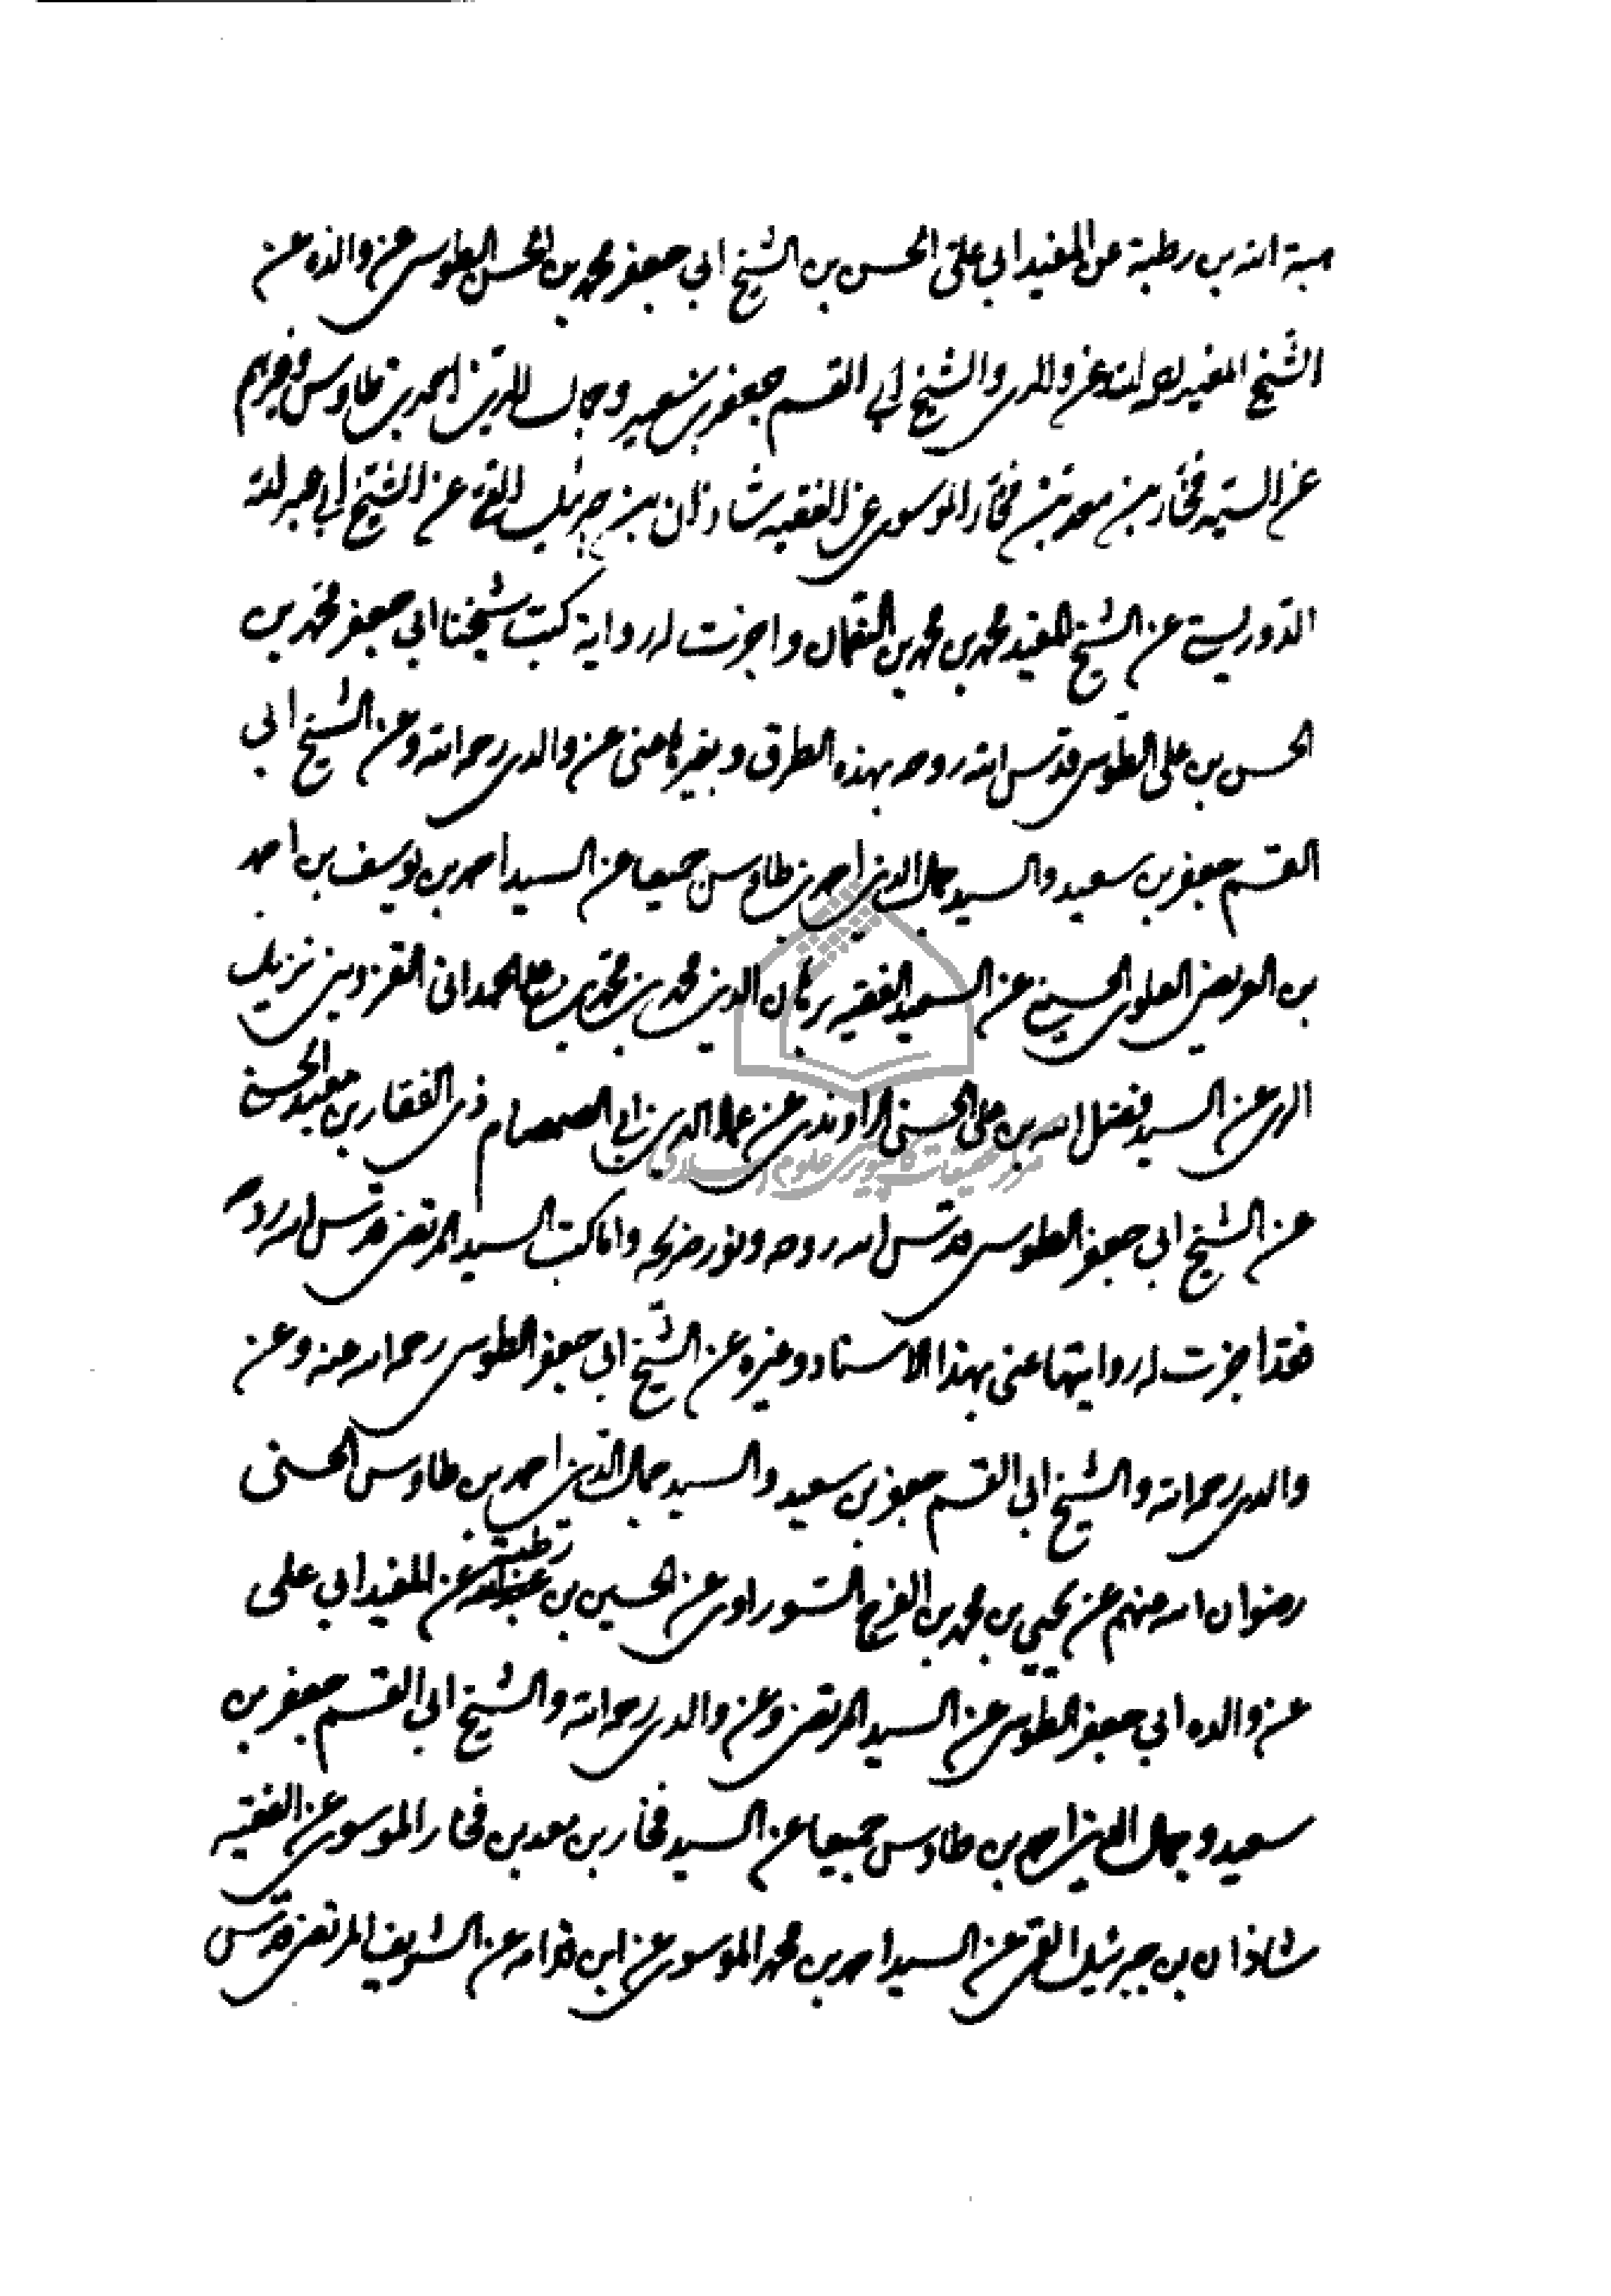 هبة الله بن رطبة عن المفيد ابي علي الحسن بن الشيخ ابي جعفر محمد بن الحسن الطوسي عن والده عن
الشيخ المفيد وعن والدي والشيخ ابي القسم جعفر بن سعيد وجمال الدين احمد بن طاوس وغيرهم
عن السيد فخار بن معد بن فخار الموسوي عن الفقيه شاذان بن جبرئيل القمي عن الشيخ ابي عبد الله
الدوريستي عن الشيخ المفيد محمد بن محمد بن النعمان واجزت له رواية كتب شيخنا ابي جعفر محمد بن
الحسن بن علي الطوسي قدس الله روحه بهذه الطرق وبغيرها عني عن والدي رحمه الله وعن الشيخ ابي
القسم جعفر بن سعيد والسيد جمال الدين احمد بن طاوس جميعا عن السيد احمد بن يوسف بن احمد
بن العريضي العلوي الحسيني عن السعيد الفقيه برهان الدين محمد بن محمد بن علي الحمداني القزويني نزيل
الري عن السيد فضل الله بن علي الحسني الراوندي عن عماد الدين ابي الصمصام ذي الفقار بن معبد الحسني
عن الشيخ ابي جعفر الطوسي قدس الله روحه ونور ضريحه واما كتب السيد المرتضى قدس الله روحه
فقد اجزت له روايتها عني بهذا الاسناد وغيره عن الشيخ ابي جعفر الطوسي رحمه الله عنه وعن
والدي رحمه الله والشيخ ابي القسم جعفر بن سعيد والسيد جمال الدين احمد بن طاوس الحسني
رضوان الله عنهم عن يحيى بن محمد بن الفرج السوراوي عن الحسين بن رطبة عن المفيد ابي علي
عن والده ابي جعفر الطوسي عن السيد المرتضى وعن والدي رحمه الله والشيخ ابي القسم جعفر بن
سعيد وجمال الدين احمد بن طاوس جميعا عن السيد فخار بن معد بن فخار الموسوي عن الفقيه
شاذان بن جبرئيل القمي عن السيد احمد بن محمد الموسوي عن ابن قدامه عن الشريف المرتضى قدس